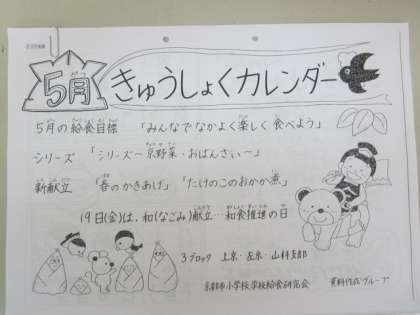 5月 きゅうしょくカレンダー
5月の給食目標 「みんなでなかよく楽しく食べよう」
シリーズ 「シリーズ〜京野菜・おばんざい〜」
新献立 「春のかきあげ」「たけのこのおかか煮」
19日(金)は、和(なごみ)献立…和食推進の日
3ブロック 上京・左京・山科支部
京都市小学校学校給食研究会 資料作成グループ